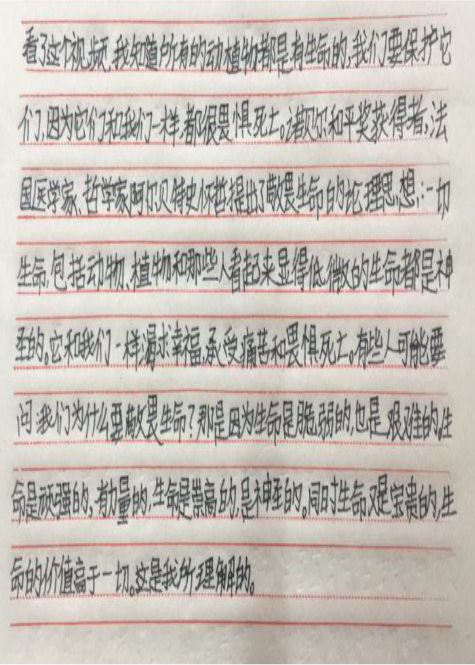 看了这个视频,我知道所有的动植物都是有生命的,我们要保护它
们,因为它们和我们一样,都很畏惧死亡。诺贝尔和平奖获得者,法
国医学家、哲学家阿尔贝特史怀哲提出了敬畏生命的论理思想:一切
生命,包括动物、植物和那些人看起来显得低微的生命都是神
圣的。它和我们一样渴求幸福,承受痛苦和畏惧死亡。有些人可能要
问:我们为什么要敬畏生命?那是因为生命是脆弱的,也是艰难的。生
命是顽强的,有力量的,生命是崇高的,是神圣的。同时生命又是宝贵的,生
命的价值高于一切。这是我所理解的。